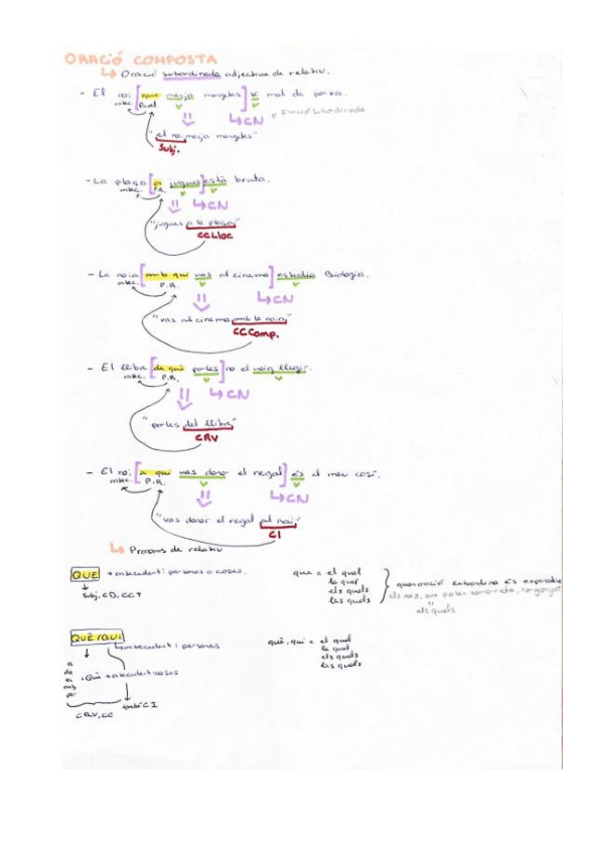 ORACIÓ COMPOSTA
↳ Oració subordinada adjectiva de relatiu.
- El noi [que menja mongetes] té mal de panxa.
antec. P.rel V V
↳ CN → Funció subordinada
"el noi menja mongetes"
Subj.
- La plaça [on jugues] està bruta.
antec. P.R. V V
↳ CN
"jugues a la plaça"
CCLloc
- La noia [amb qui vas al cinema] estudia Biologia.
antec. P.R. V V
↳ CN
"vas al cinema amb la noia"
CCComp.
- El llibre [de què parles] no el vaig llegir.
antec. P.R. V V
↳ CN
"parles del llibre"
CRV
- El noi [a qui vas donar el regal] és el meu cosí.
antec. P.R. V V
↳ CN
"vas donar el regal al noi"
CI
↳ Pronoms de relatiu
QUE + antecedent: persones o coses.
Subj, CD, CCT
que = el qual
la qual
els quals
les quals
quan oració subordinada és explicativa
els nois, que
els quals
QUÈ / QUI
antecedent: persones
a
de
en
amb
per
+ Què + antecedent coses
també CI
CRV, CC
què, qui = el qual
la qual
els quals
les quals